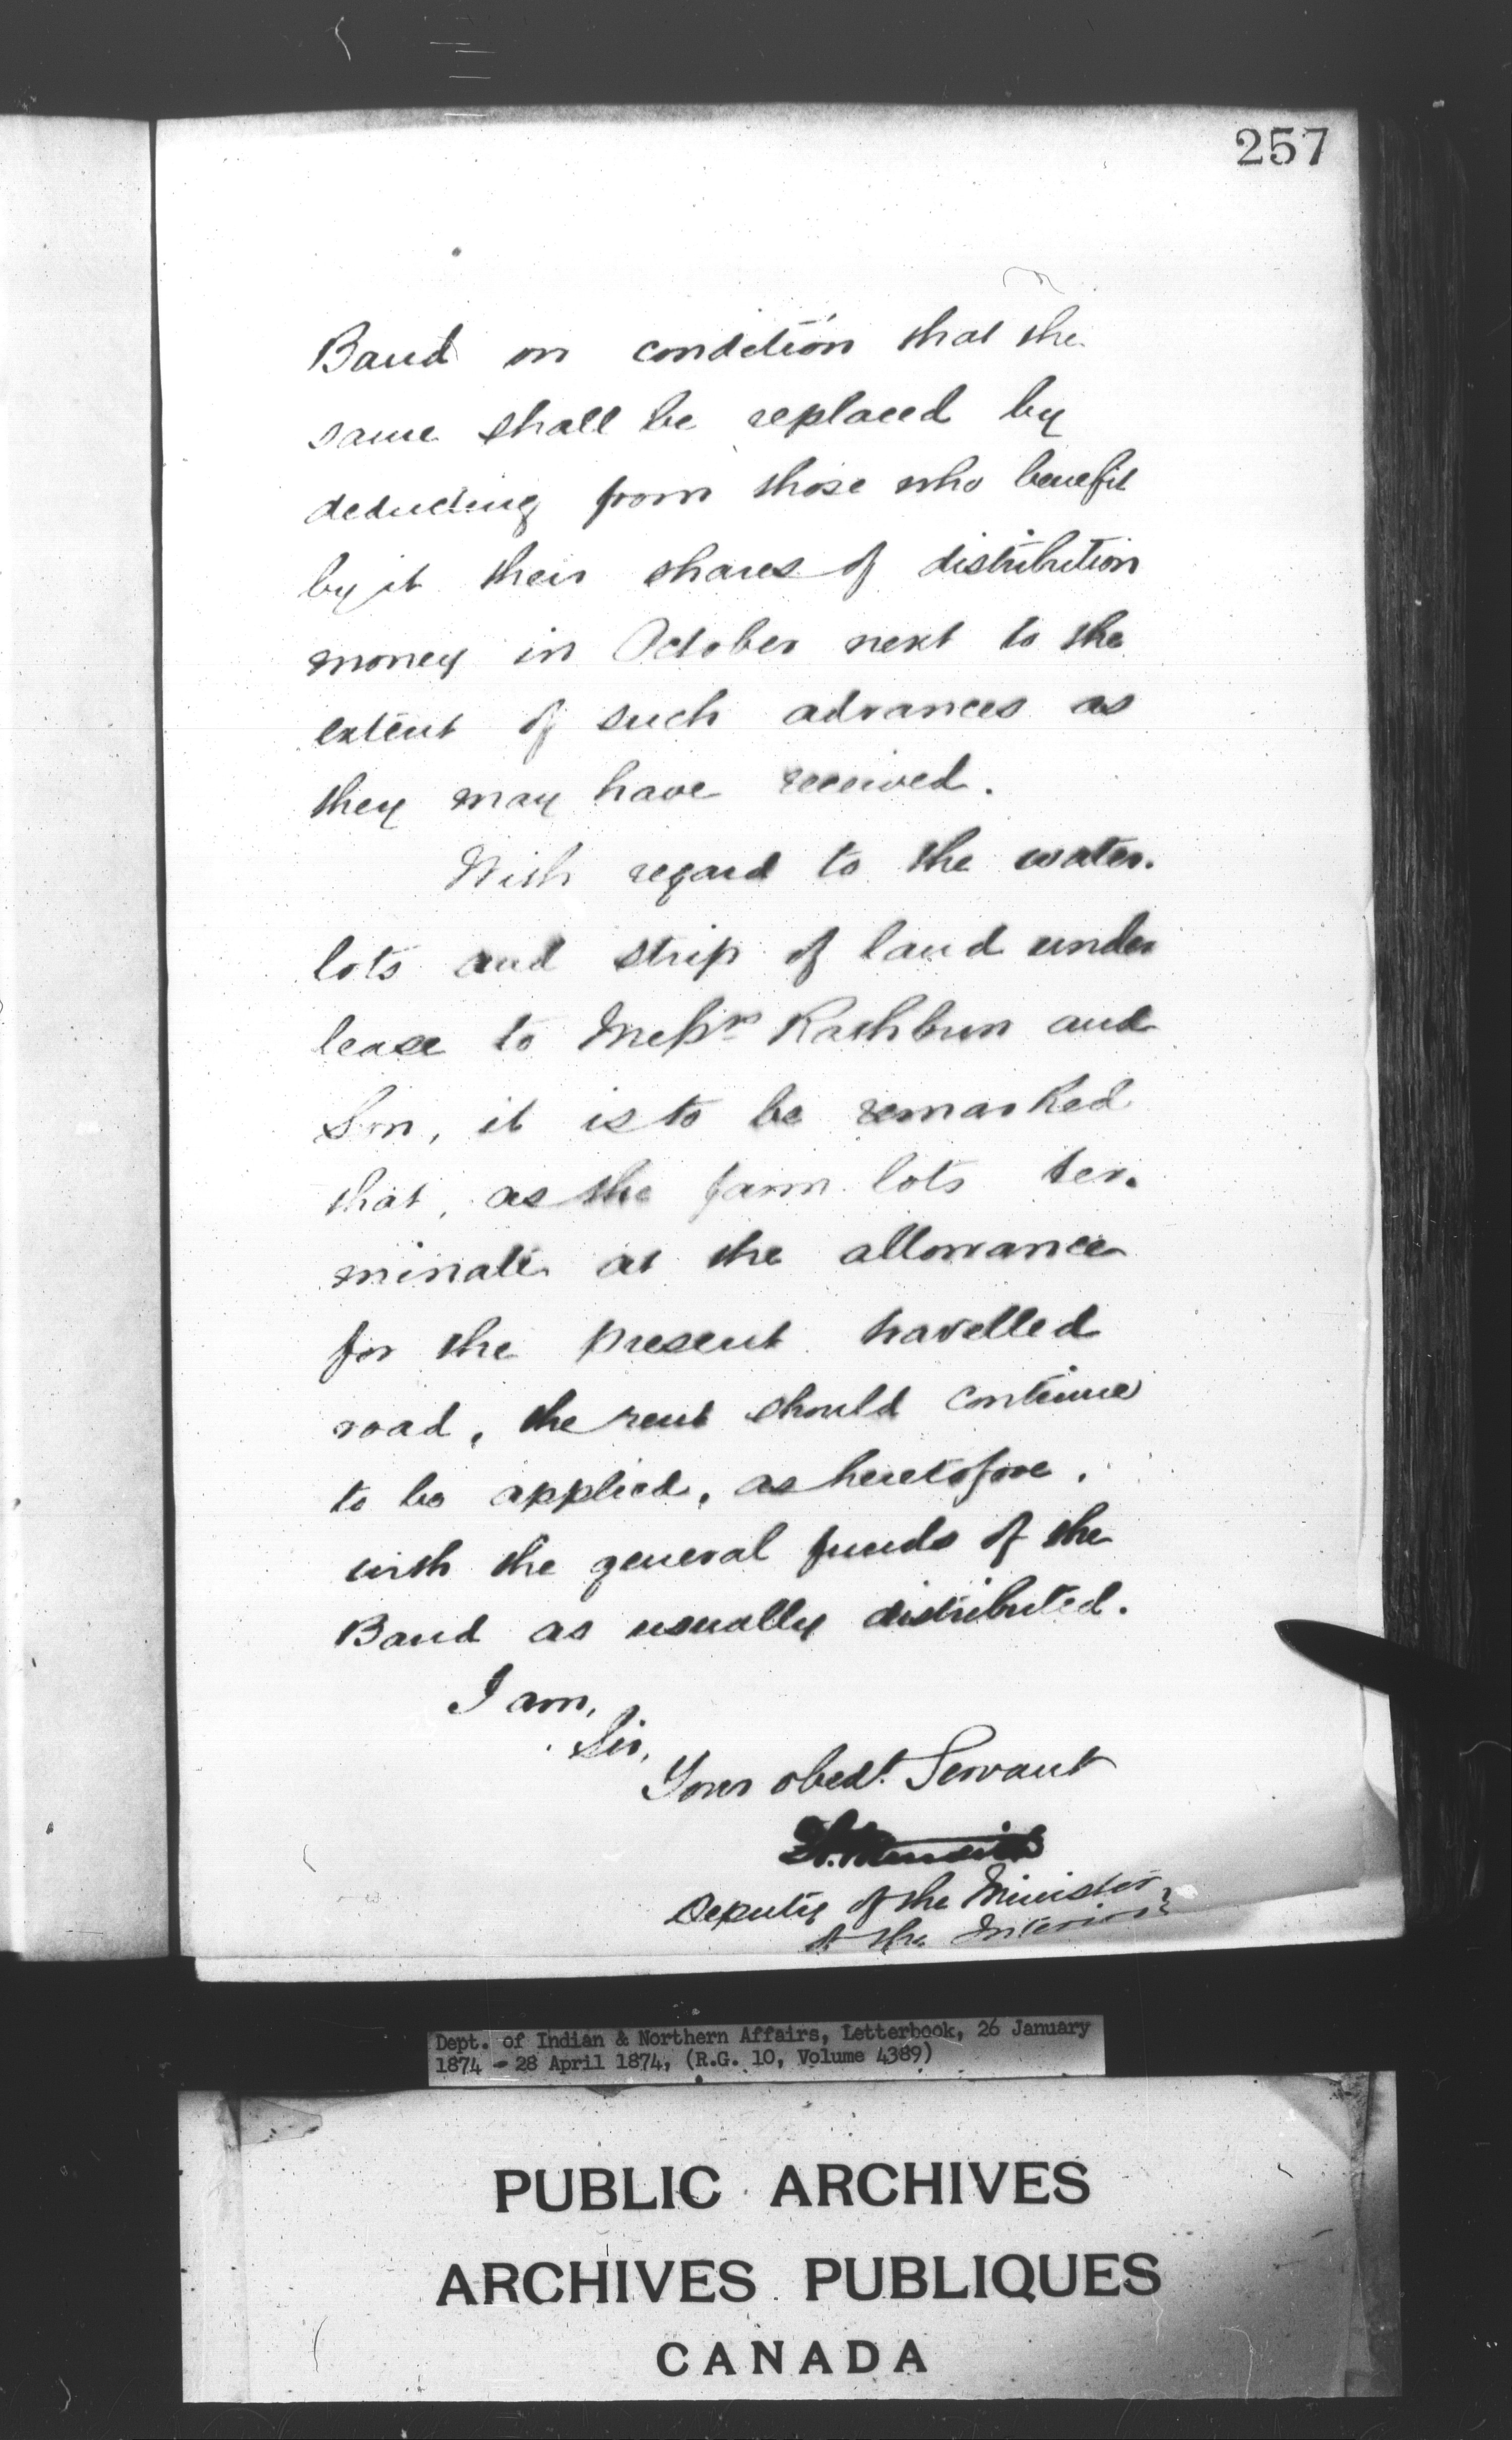 257
Band on condition that the
same shall be replaced by
deducting from those who benefit
by it their shares of distribution
money in October next to the
extent of such advances as
they may have received.
With regard to the water-
lots and strip of land under
lease to Messrs Rathbun and
Son, it is to be remarked
that, as the farm lots ter-
minate at the allowance
for the present travelled
road, the rent should continue
to be applied, as heretofore,
with the general funds of the
Band as usually distributed.
I am,
Sir,
Your obedt. Servant
Deputy of the Minister
of the Interior
Dept. of Indian & Northern Affairs, Letterbook, 26 January
1874 - 28 April 1874, (R.G. 10, Volume 4389)
PUBLIC ARCHIVES
ARCHIVES PUBLIQUES
CANADA